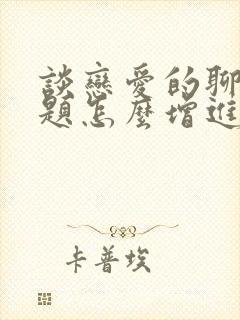 談戀愛的聊
題怎麼增進
卡普埃